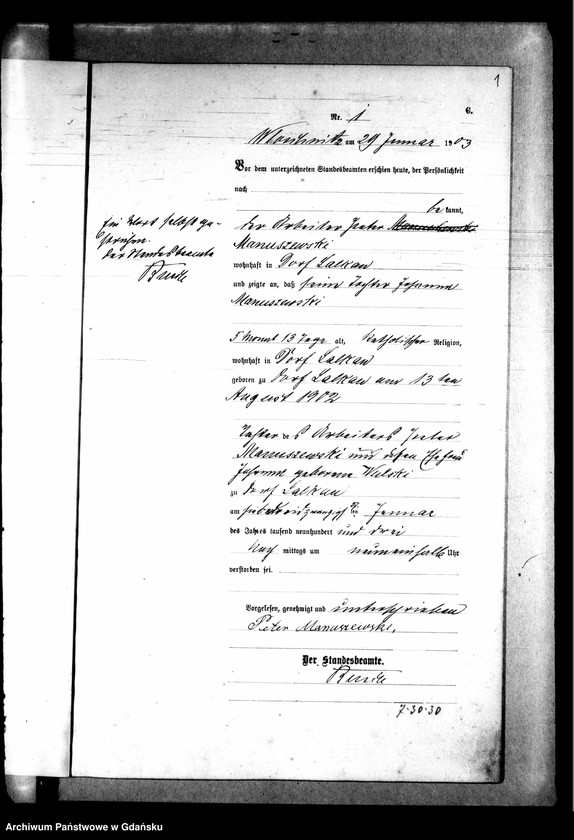 1
Nr. 1
C.
am 29 Januar 1903
Vor dem unterzeichneten Standesbeamten erschien heute, der Persönlichkeit
nach
be kannt,
der Arbeiter Peter
Manuszewski
wohnhaft in Dorf Lalkau
und zeigte an, daß seine Tochter Johanna
Manuszewski
5 Monat 13 Tage alt, katholischer Religion,
wohnhaft in Dorf Lalkau
geboren zu Dorf Lalkau am 13 ten
August 1902
Tochter des Arbeiters Peter
Manuszewski und dessen Ehefrau
Johanna geborene
zu Dorf Lalkau
am siebenundzwanzigsten Januar
des Jahres tausend neunhundert und drei
Nach mittags um neuneinhalb Uhr
verstorben sei.
Vorgelesen, genehmigt und unterschrieben
Peter Manuszewski,
Der Standesbeamte.
7·30·30
Ein Wort selbst ge-
strichen.
Der Standesbeamte
Archiwum Państwowe w Gdańsku